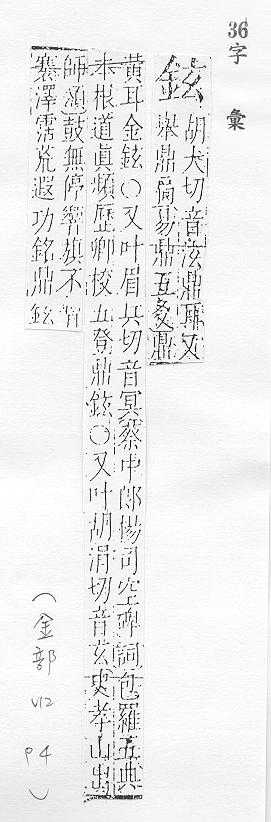 36
字彙
鉉
胡犬切音泫鼎耳又
舉鼎扃易鼎五爻鼎
黄耳金鉉○又叶眉兵切音冥蔡中郎楊司空碑詞包羅五典
本根道眞頻歷卿校五登鼎鉉○又叶胡涓切音玄史孝山出
師頌鼓無停響旗不
襄澤霑荒遐功銘鼎鉉
(金部 V12 P4)